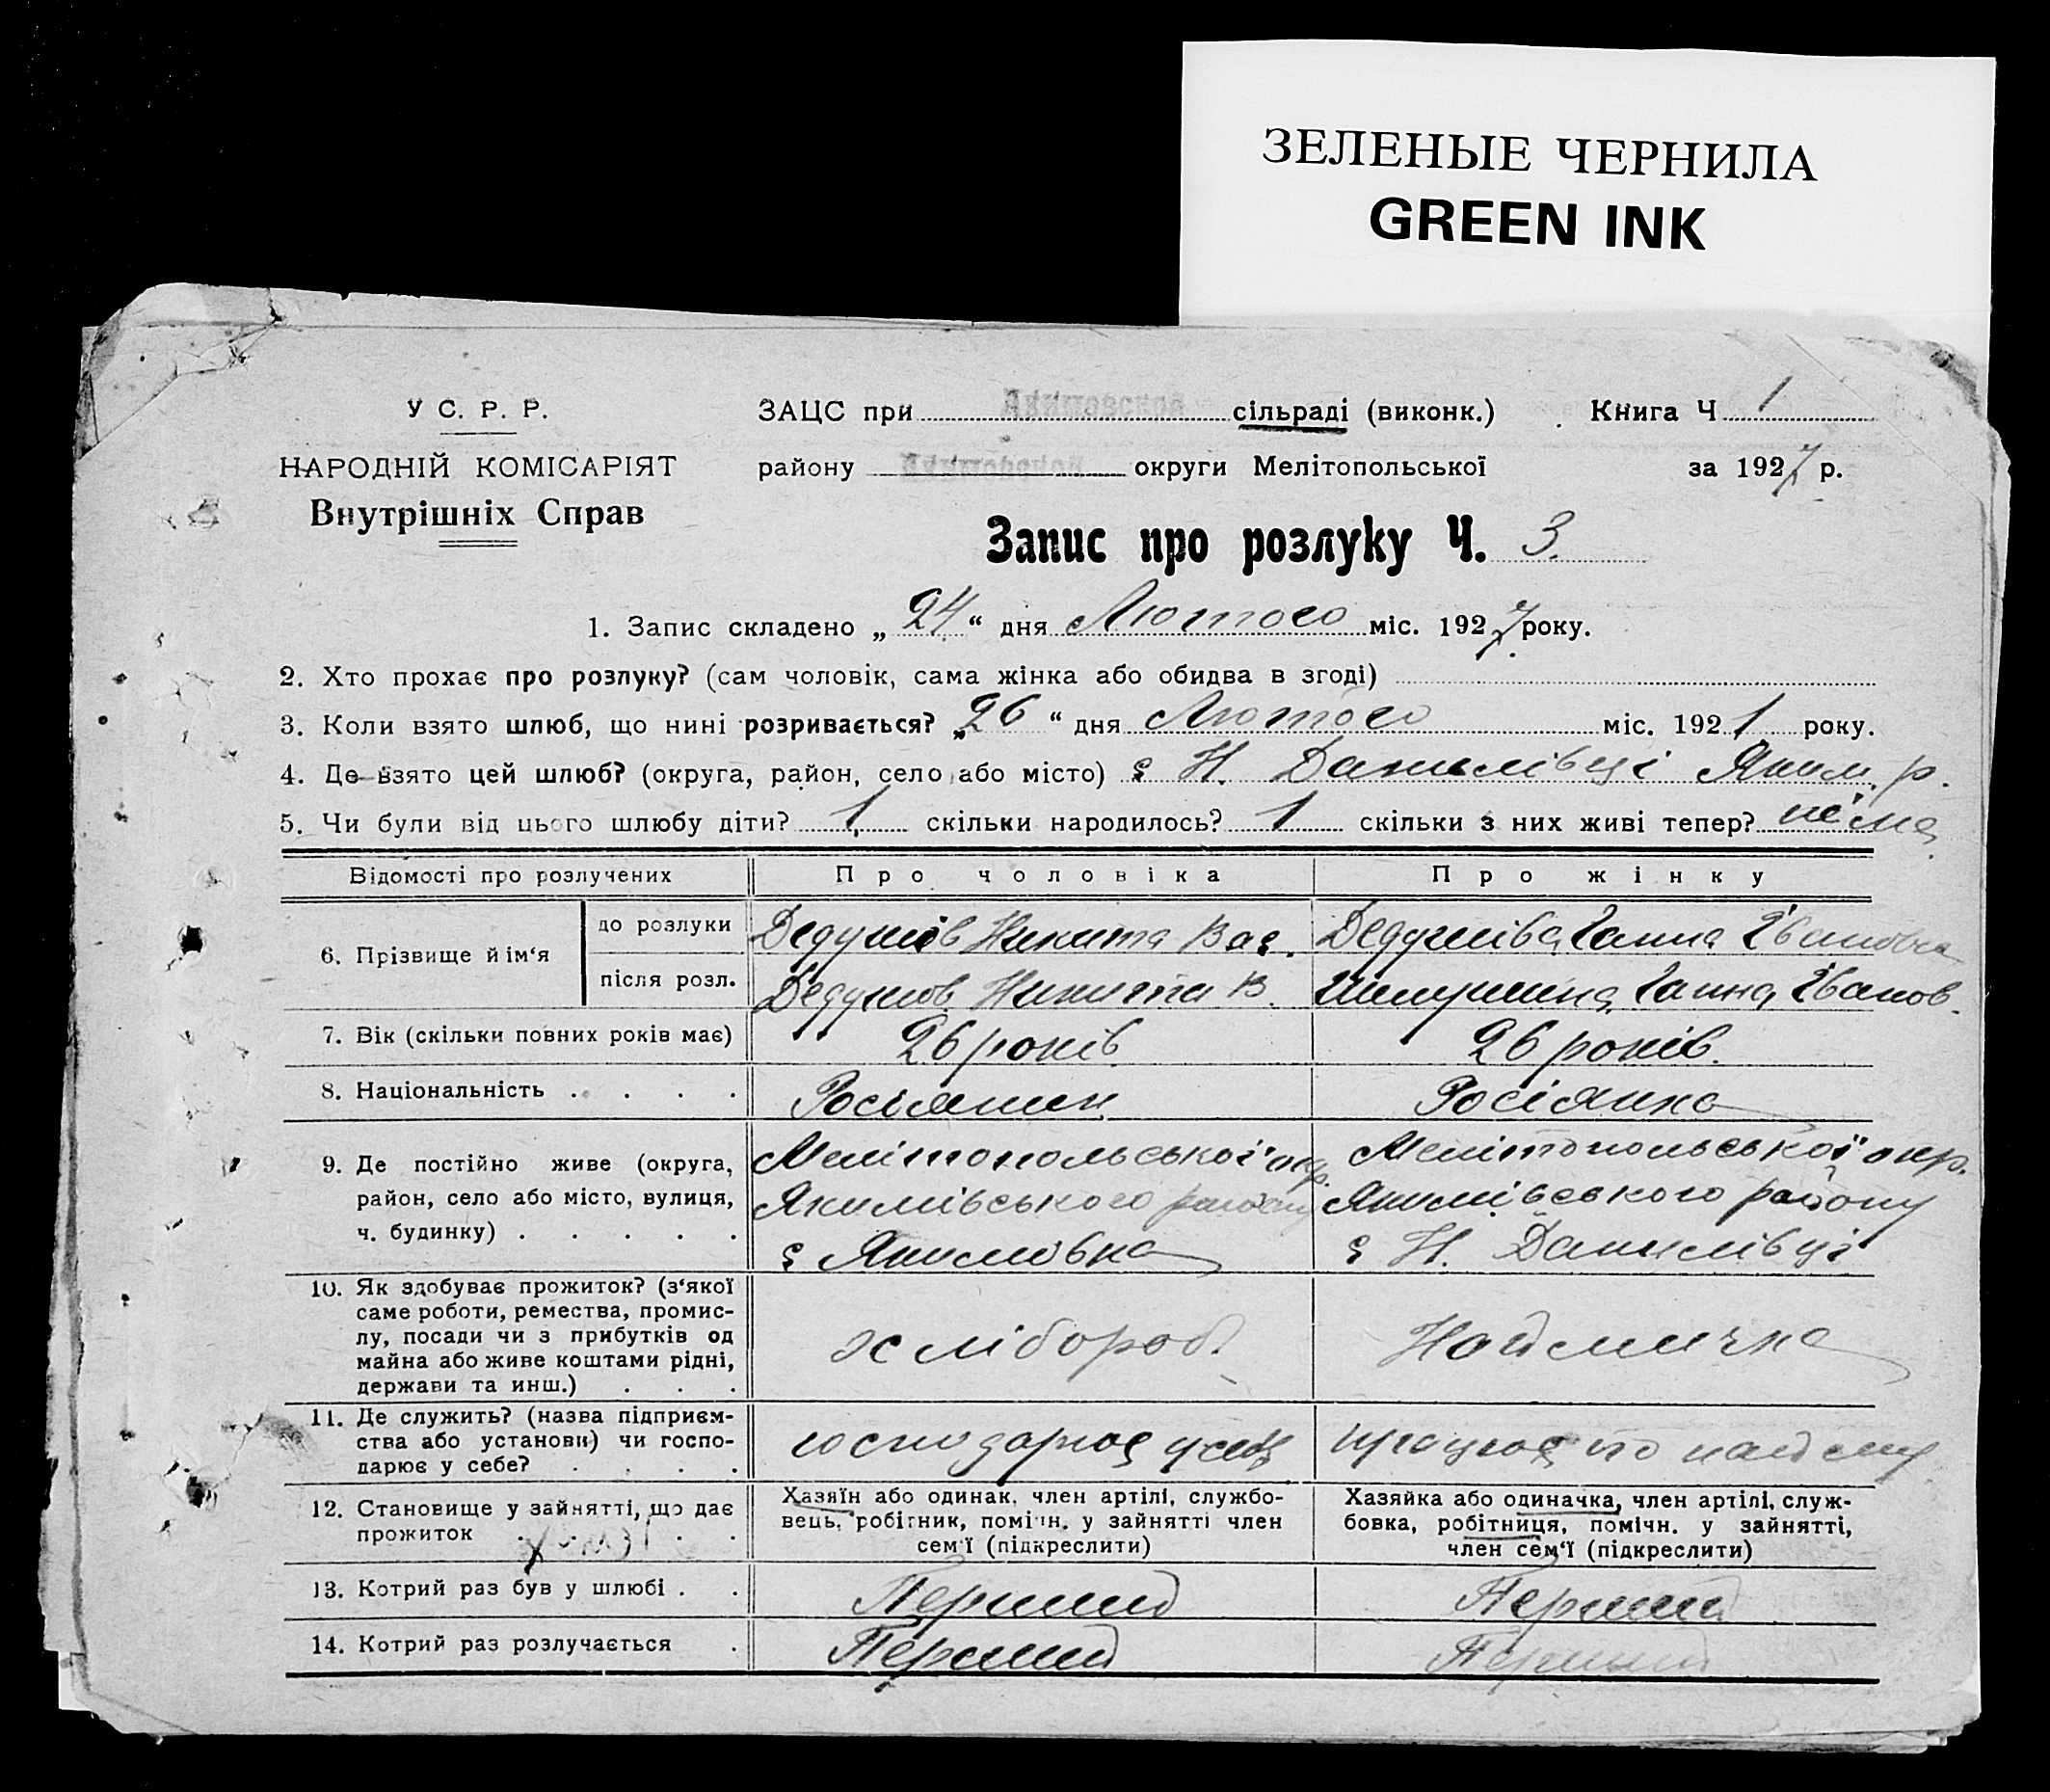 ЗЕЛЕНЫЕ ЧЕРНИЛА
GREEN INK
У С. Р. Р.
НАРОДНІЙ КОМІСАРІЯТ
Внутрішніх Справ
ЗАЦС при Якимовской сільраді (виконк.) Книга Ч 1
району округи Мелітопольської за 1927 р.
Запис про розлуку Ч. 3.
1. Запис складено „ 24 “ дня Лютого міс. 1927 року.
2. Хто прохає про розлуку? (сам чоловік, сама жінка або обидва в згоді)
3. Коли взято шлюб, що нині розривається? „ 26 “ дня Лютого міс. 1921 року.
4. Де взято цей шлюб? (округа, район, село або місто) с Н. Данилівці Яким. р.
5. Чи були від цього шлюбу діти? 1 скільки народилось? 1 скільки з них живі тепер? нема
Відомості про розлучених Про чоловіка Про жінку
6. Прізвище й ім‘я
до розлуки Дедушов Никита Вас. Дедушова Ганна Івановна
після розл. Дедушов Никита В. Ганна Іванов.
7. Вік (скільки повних років має) 26 років 26 років.
8. Національність . . . . Росіянин Росіянка
9. Де постійно живе (округа, Мелітопольської окр. Мелітопольської окр.
район, село або місто, вулиця, Якимівського району Якимівського району
ч. будинку) . . . . . с Якимовка с Н. Данилівці
10. Як здобуває прожиток? (з‘якої
саме роботи, ремества, промис-
лу, посади чи з прибутків од
майна або живе коштами рідні,
держави та инш.) . . .
хлібороб. Наймичка
11. Де служить? (назва підприєм-
ства або установи) чи госпо-
дарює у себе? . . . .
господарює у себе працює по найму
12. Становище у зайнятті, що дає
прожиток . . . .
Хазяїн або одинак, член артілі, службо-
вець, робітник, помічн. у зайнятті член
сем‘ї (підкреслити)
Хазяйка або одиначка, член артілі, служ-
бовка, робітниця, помічн. у зайнятті,
член сем‘ї (підкреслити)
13. Котрий раз був у шлюбі . . Перший Перший
14. Котрий раз розлучається . Перший Перший